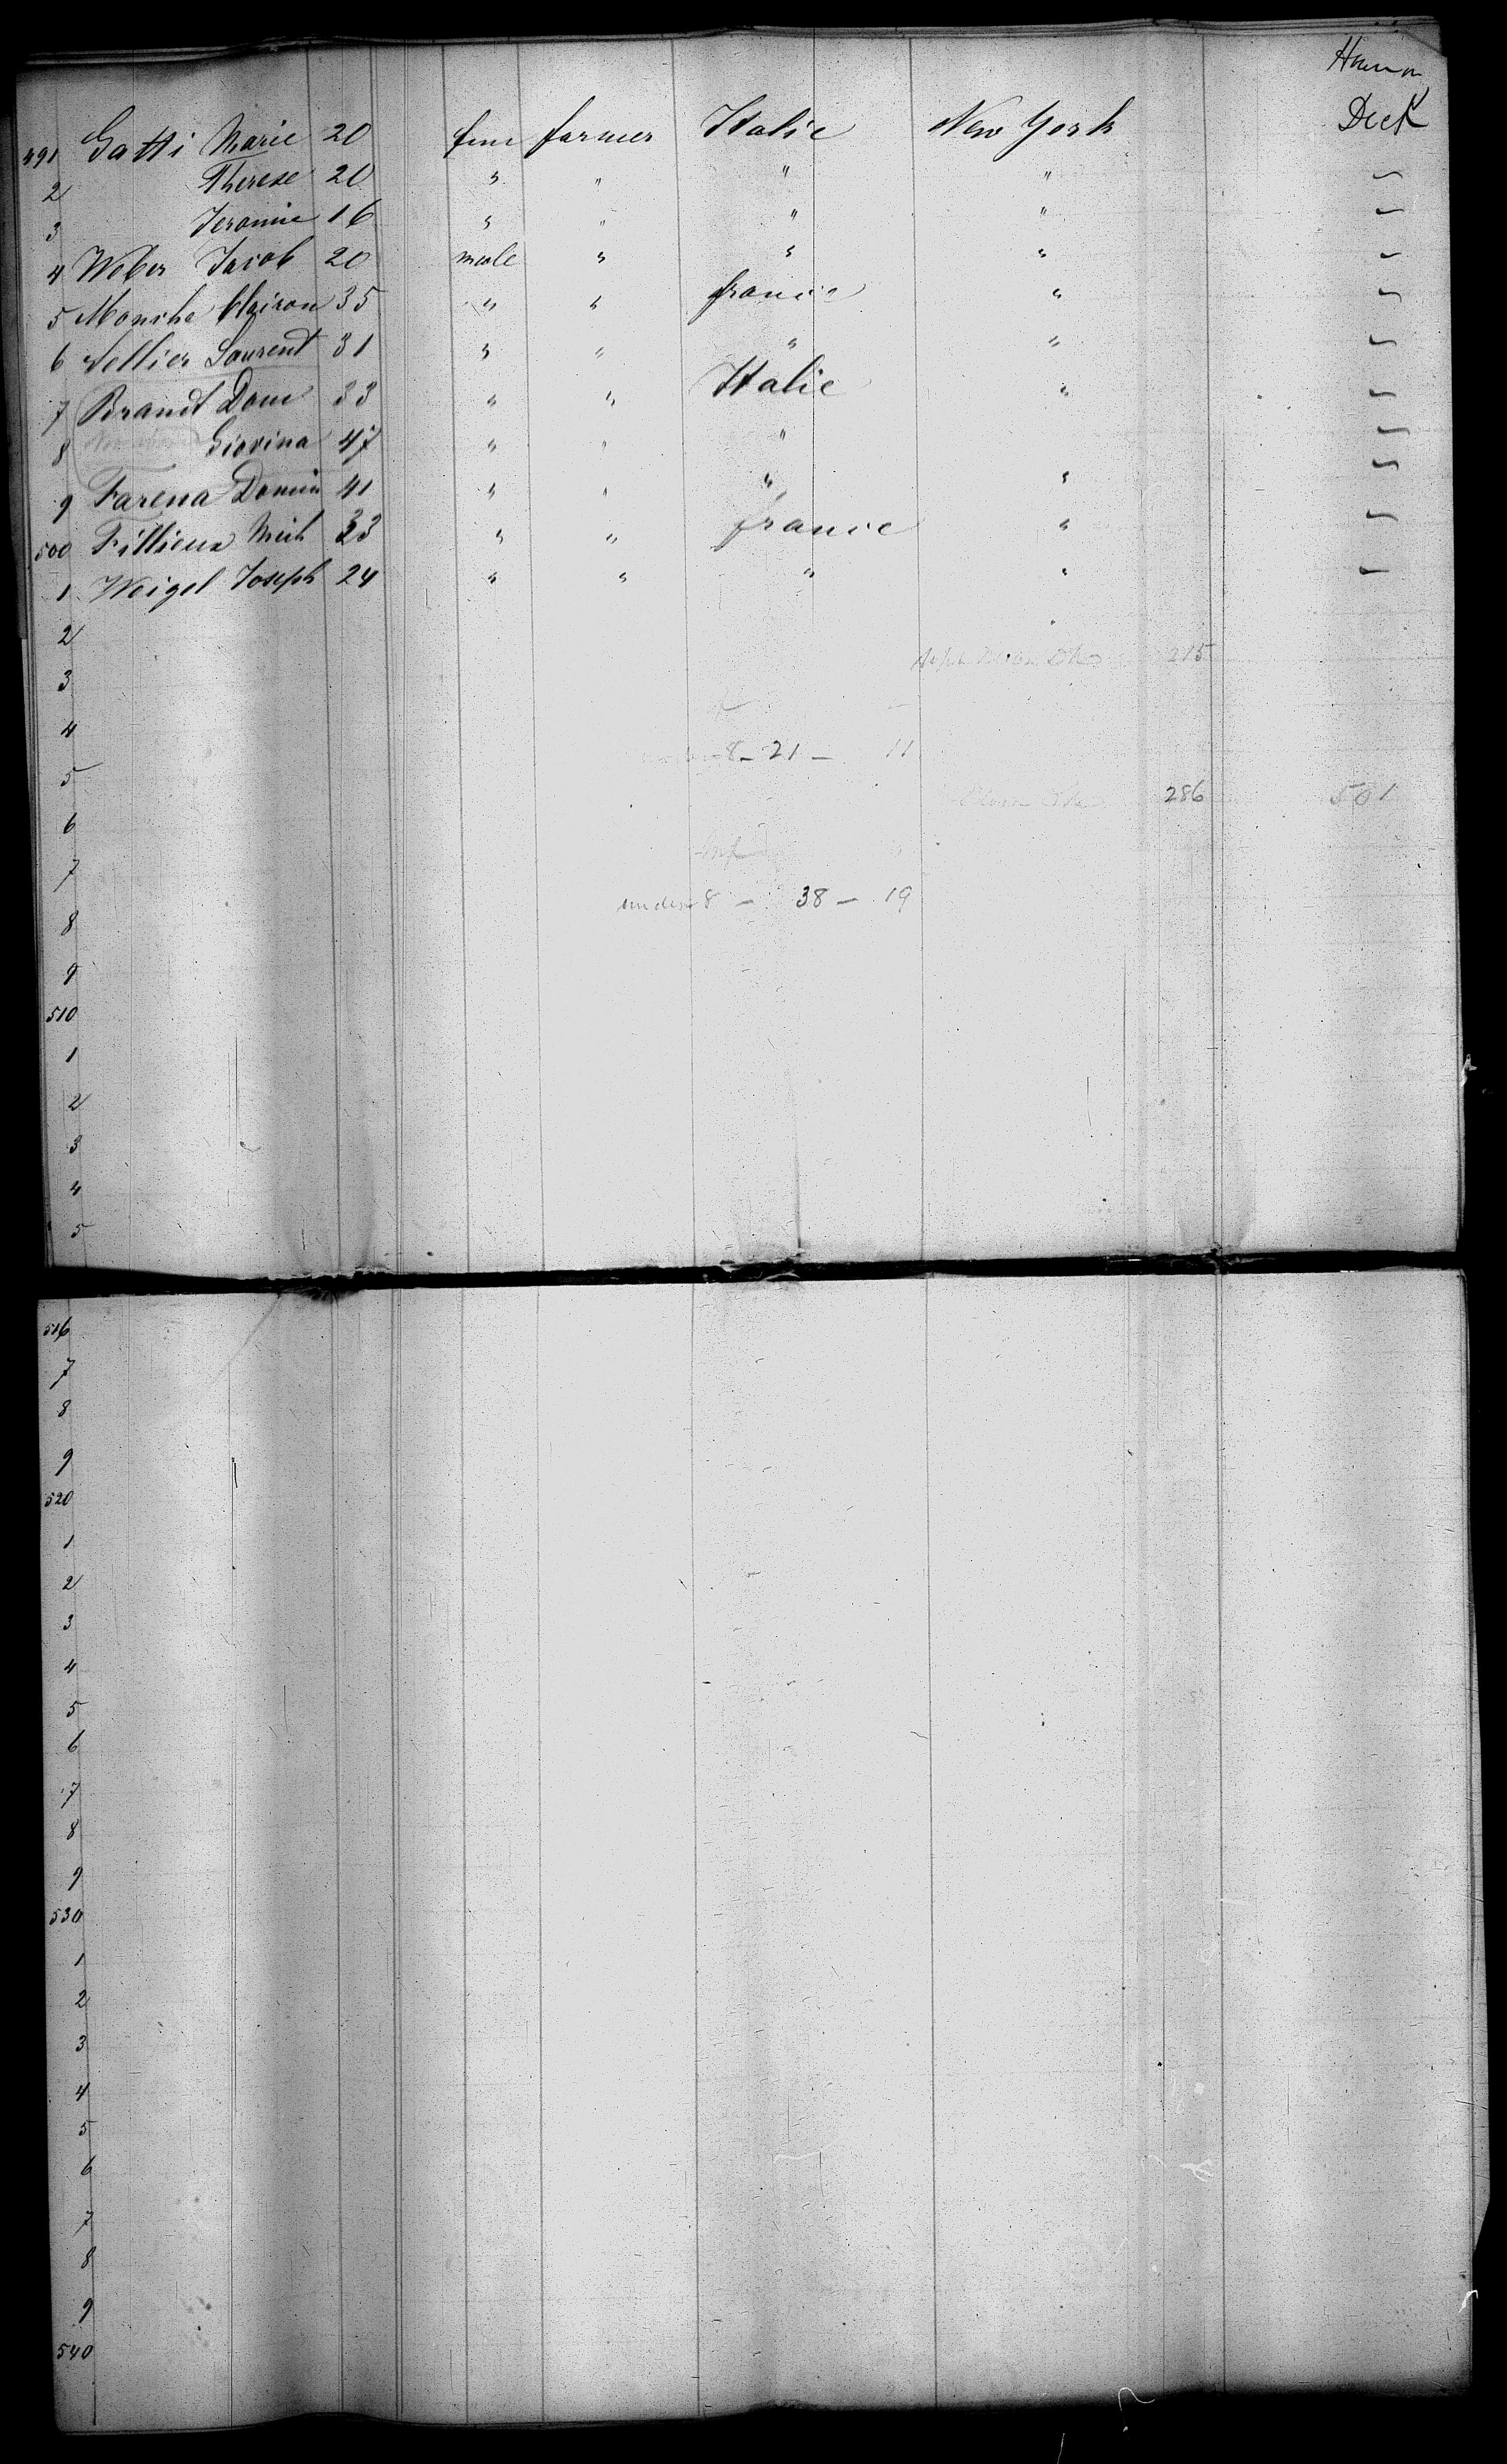 Deck
491 Gatti Marie 20 fem farmer Italie New York
2 Therese 20 " " " "
3 Jeromie 16 " " " "
4 Weber Jacob 20 male " " "
5 Monche 35 " " france "
6 Sellier Laurent 31 " " " "
7 Brandt Dom 33 " " Italie "
8 Giovina 47 " " "
9 Farena Domin 41 " " " "
500 Fillieux Mich 33 " " france "
1 Weigel Joseph 24 " " " "
2
3 215
4
8 - 21 - 11
5
286 501
6
7
under 8 - 38 - 19
8
9
510
1
2
3
4
5
516
7
8
9
520
1
2
3
4
5
6
7
8
9
530
1
2
3
4
5
6
7
8
9
540